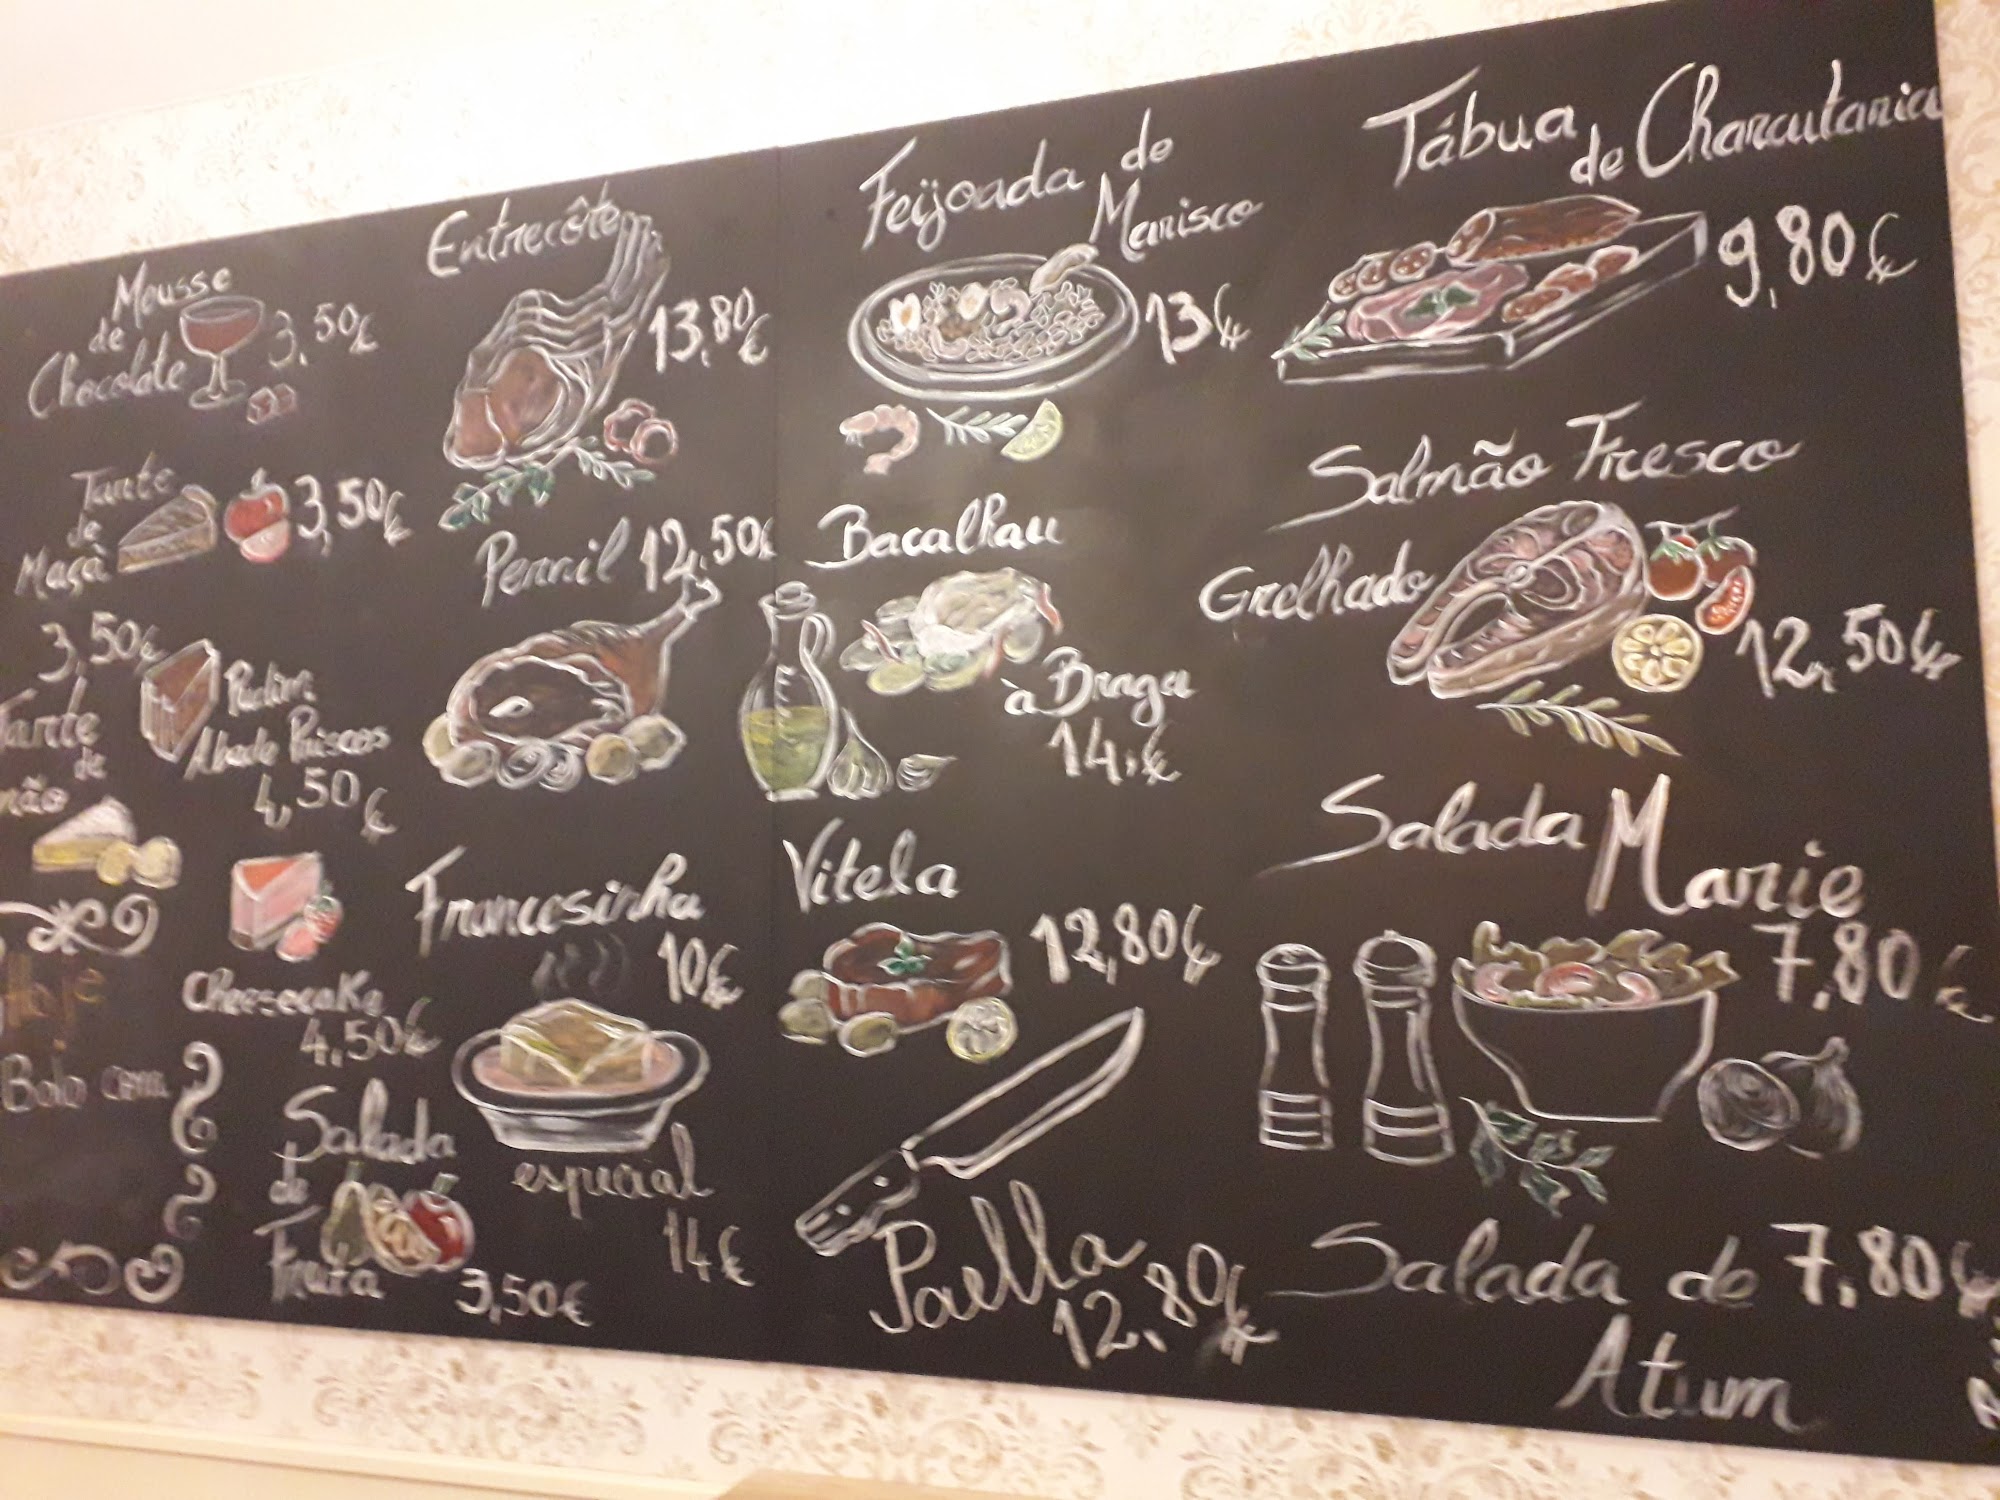 Mousse
de
Chocolate
3,50€
Tarte
de
Maçã
3,50€
3,50€
Tarte
de
Pudim
Abade Priscos
4,50€
Cheesecake
4,50€
Hoje
Bolo com
Salada
de
Fruta
3,50€
Entrecôte
13,80€
Pernil 12,50€
Francesinha
10€
especial
14€
Feijoada de
Marisco
13€
Bacalhau
à Braga
14,€
Vitela
12,80€
Paella
12,80€
Tábua
de Charcutaria
9,80€
Salmão Fresco
Grelhado
12,50€
Salada
Marie
7,80€
Salada de 7,80€
Atum